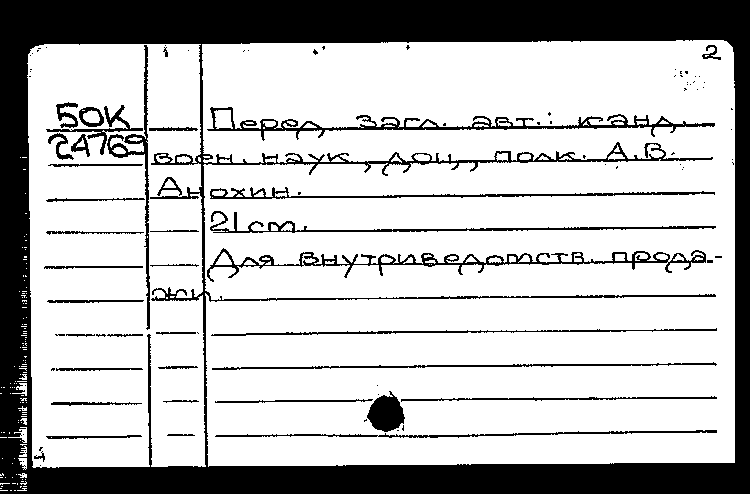 2
50К Перед загл. авт.: канд.
24769 воен. наук, доц., полк. А.В.
Анохин.
21 см.
Для внутриведомств. прода-
жи.
4